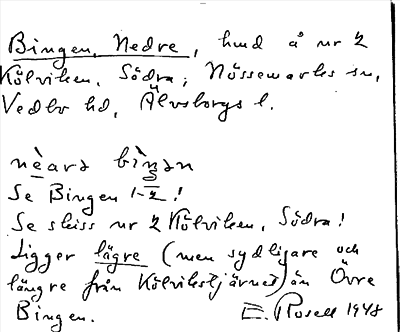 Bingen, Nedre, hmd å nr 2
Kölviken, Södra; Nössemarks sn,
Vedbo hd, Älvsborgs l.
nèara bìŋən
Se Bingen 1-2!
Se skiss nr 2 Kölviken, Södra!
Ligger lägre (men sydligare och
längre från Kölvikstjärnet) än Övre
Bingen. E. Rosell 1948